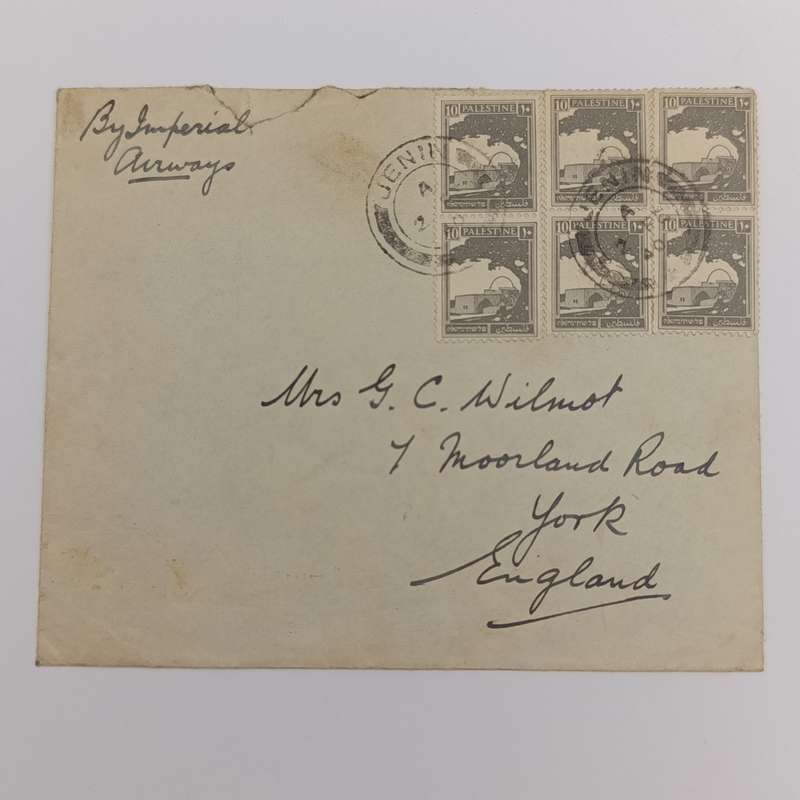 By Imperial
Airways
10 PALESTINE ١٠
فلسطين פלשתינה א״י
10 PALESTINE ١٠
فلسطين פלשתינה א״י
10 PALESTINE ١٠
فلسطين פלשתינה א״י
JENIN
A
2
JENIN
A
40
10 PALESTINE ١٠
فلسطين פלשתינה א״י
10 PALESTINE ١٠
فلسطين פלשתינה א״י
10 PALESTINE ١٠
فلسطين פלשתינה א״י
Mrs G. C. Wilmot
7 Moorland Road
York
England